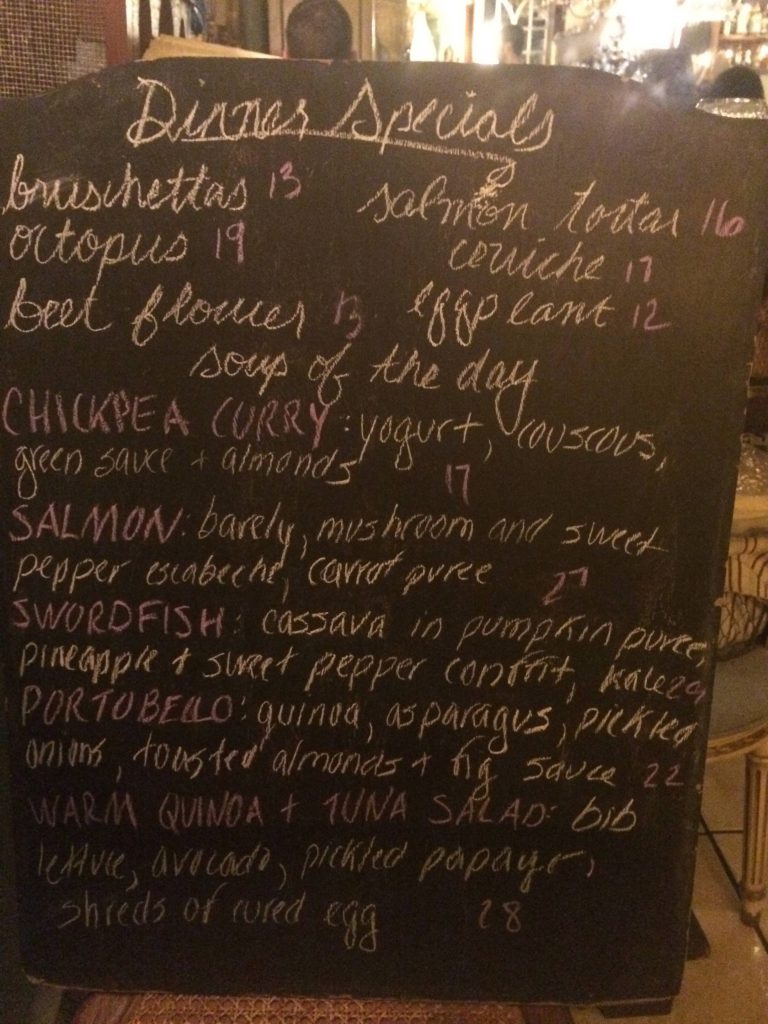 Dinner Specials
bruschettas 13 salmon tartar 16
octopus 19 ceviche 17
beet flower 13 eggplant 12
soup of the day
CHICKPEA CURRY: yogurt, couscous,
green sauce + almonds 17
SALMON: barely, mushroom and sweet
pepper escabeche, carrot puree 27
SWORDFISH: cassava in pumpkin puree,
pineapple + sweet pepper confit, kale 29
PORTOBELLO: quinoa, asparagus, pickled
onions, toasted almonds + fig sauce 22
WARM QUINOA + TUNA SALAD: bib
lettuce, avocado, pickled papaya,
shreds of cured egg 28